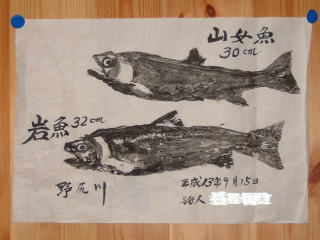 山女魚
30cm
岩魚 32cm
野尻川
平成13年9月15日